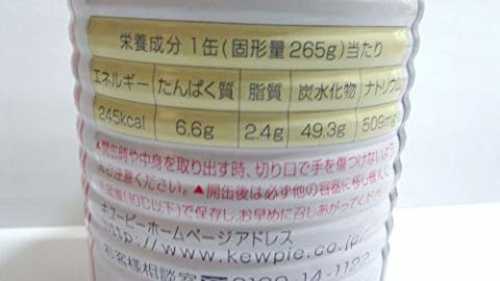 栄養成分 1缶(固形量265g)当たり
エネルギー たんぱく質 脂質 炭水化物 ナトリウム
245kcal 6.6g 2.4g 49.3g 509mg
▲開缶時や中身を取り出す時、切り口で手を傷つけないよう
ご注意ください。▲開缶後は必ず他の容器に移し替えて
(10℃以下)で保存し、お早めに召しあがってください
キユーピーホームページアドレス
http://www.kewpie.co.jp/
お客様相談室 0120-14-1122